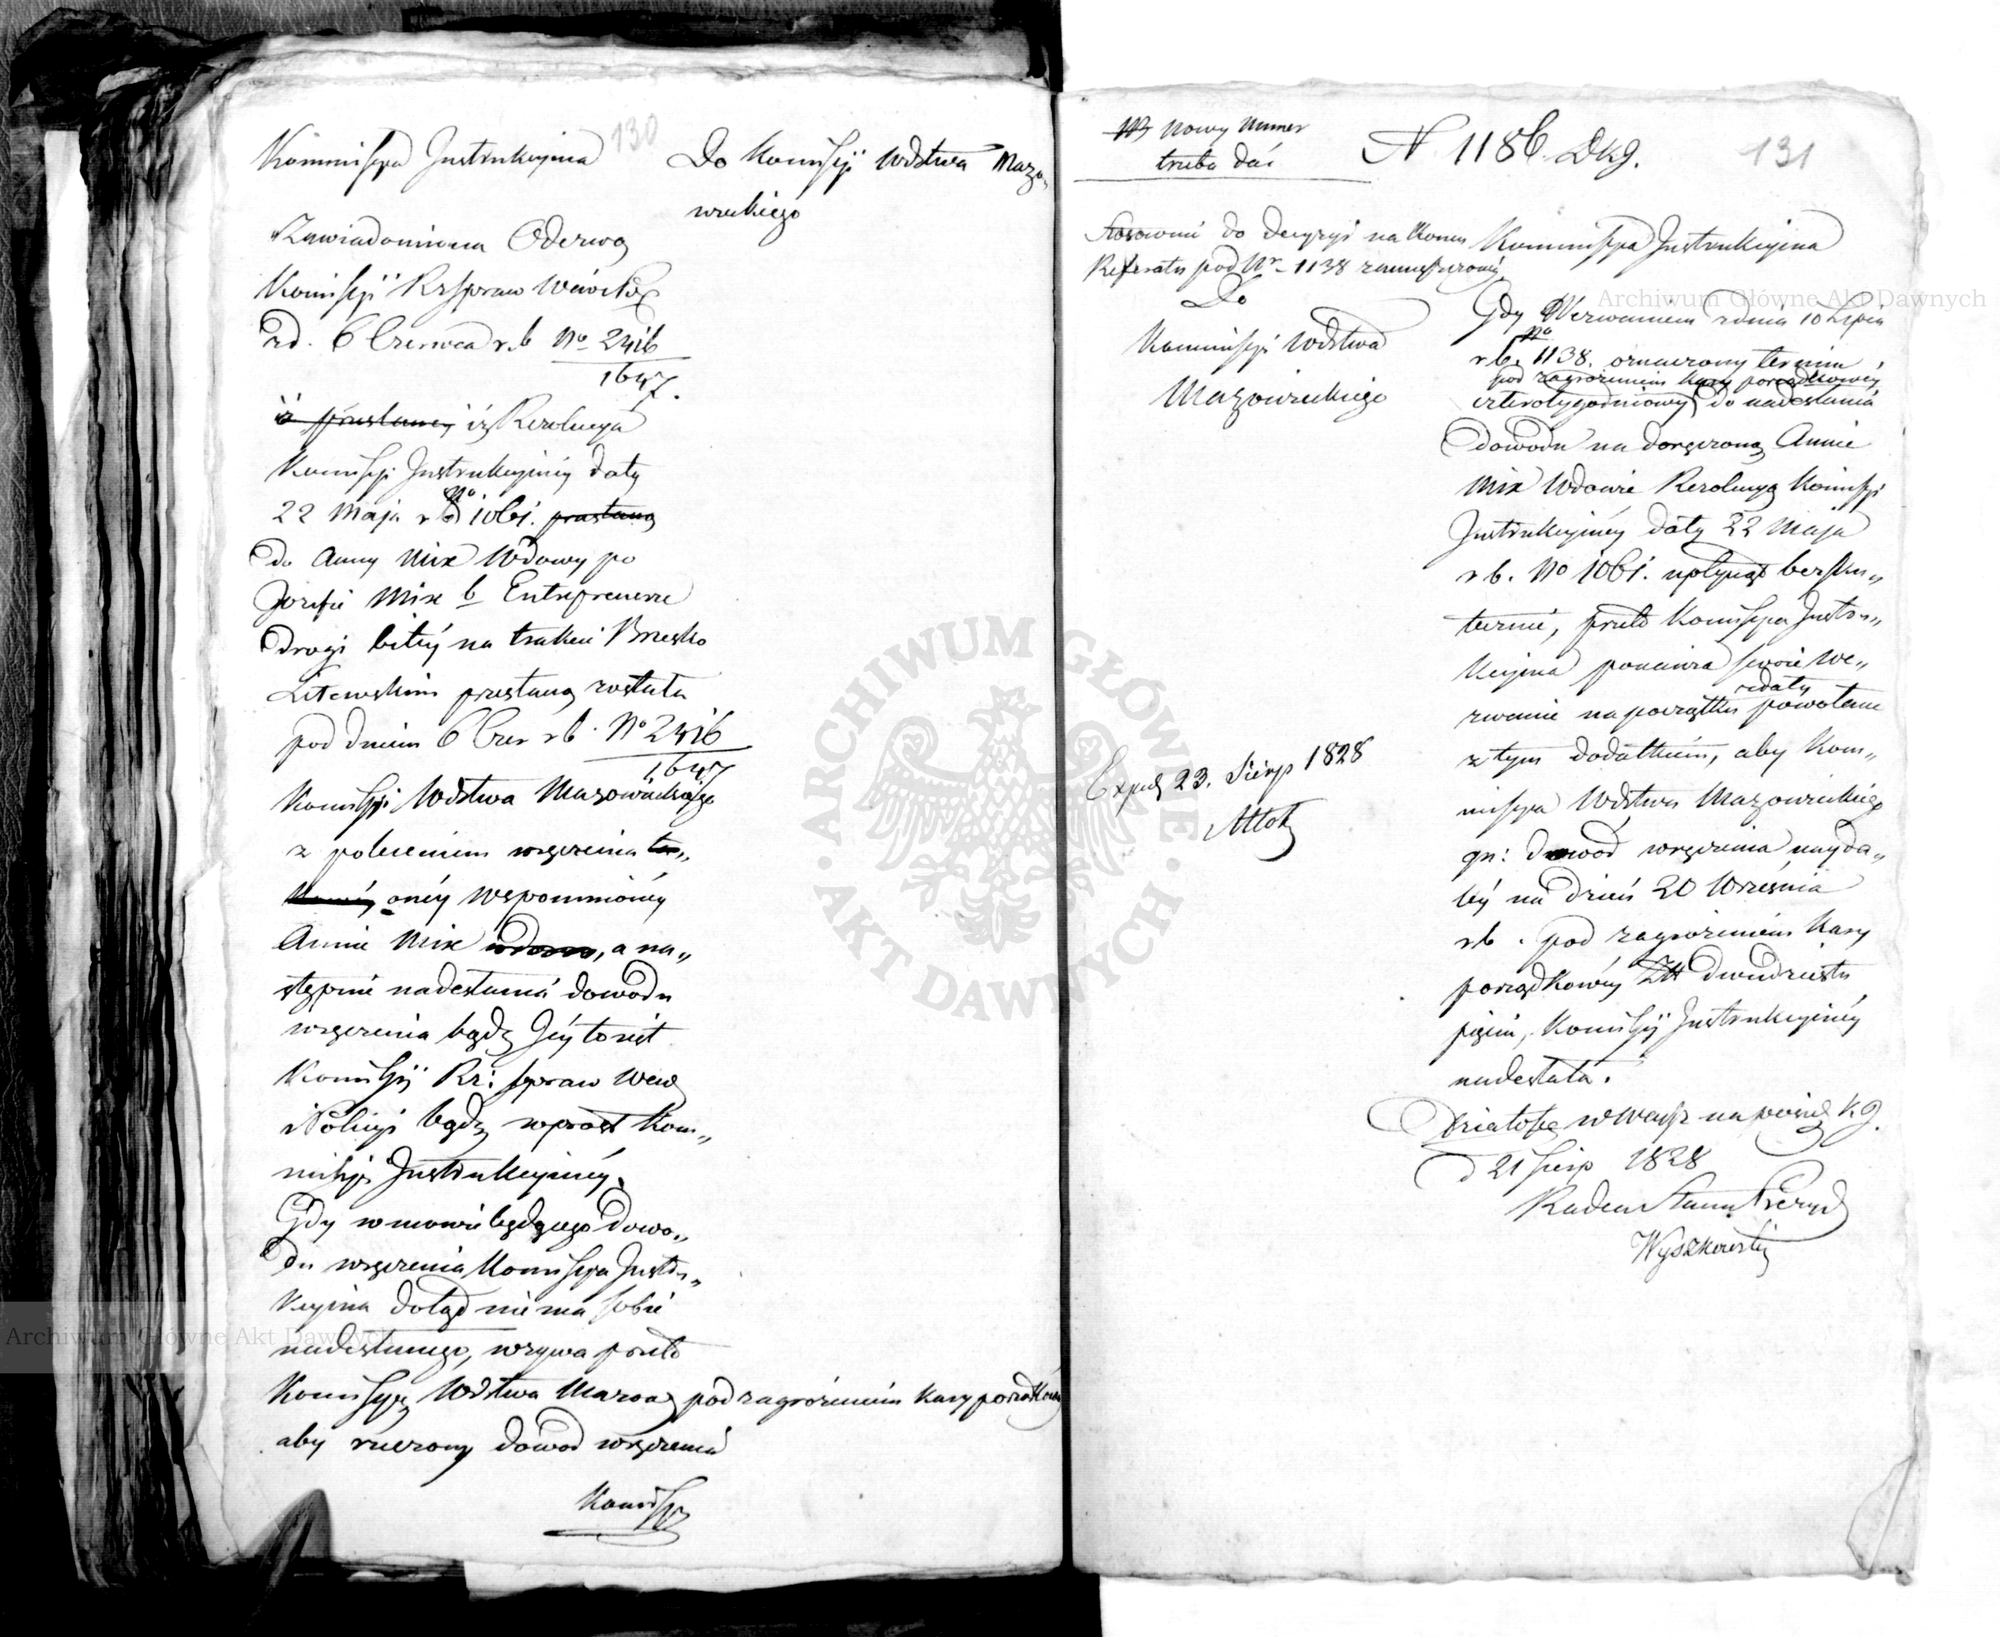 130
Kommissya Instrukcyina
Do Kommissyi Wdztwa Mazo„
wieckiego
Zawiadomiona Odezwą
Komissyi Rz Spraw Wewn
zd. 6 Czerwca r.b. No 2416
1647.
i przesłaney iż Rezolucya
Komissyi Instrukcyinéy daty
22 Maja r b No 1061. przesłaną
do Anny Mix Wdowy po
Jozefie Mix b Entreprenerze
Drogi bitéy na trakcie Brzesko
Litewskim przesłaną została
pod dniem 6 Czer r b. No 2416
1647
Komissyi Wdztwa Mazowieckiego
z poleceniem wręczenia ta„
onéy wspomnionéy
Annie Mix wdowie, a na„
stępnie nadesłania dowodu
wręczenia bądź Jéy to iest
Komissyi Rz: Spraw Wew
i Policyi bądź wprost Kom„
missyi Instrukcyinéy.
Gdy w mowie będącego Dowo„
du wręczenia Komissya Instru„
kcyina dotąd nie ma sobie
nadesłanego, wzywa przeto
Komissyę Wdztwa Mazow pod zagrożeniem kary porządkowéy
aby rzeczony dowód wręczenia
Komissyi
Nowy Numer
trzeba dać
N 1186. DKg.
131
Stosownie do decyzyi na Koncu
Referatu pod Nr 1138
Kommissya Instrukcyina
Do
Kommissyi Wdztwa
Mazowieckiego
Archiwum Główne Akt Dawnych
Gdy Wezwaniem z dnia 10 Lipca
r b. No 1138. oznaczony termin
pod zagrożeniem kary porządkowéy
czterotygodniowy do nadesłania
dowodu na doręczoną Annie
Mix Wdowie Rezolucyą Komissyi
Instrukcyinéy daty 22 Maja
r b. No 1061. upłynął bezsku„
tecznie, przeto Komissya Instru„
kcyina ponawia swoie We„
zwanie na początku z daty powołane
z tym dodatkiem, aby Kom„
missya Wdztwa Mazowieckiego
qu: dowod wręczenia nayda„
léy na dzień 20 Września
r b. pod zagrożeniem kary
porządkowéy Zł dwudziestu
pięciu, Komissyi Instrukcyinéy
nadesłała.
Działo się w Warsz na posied K g.
d 21 Sierp 1828
Radca Stanu Prezyd
Wyszkowski
Exped 23. Sierp 1828
ARCHIWUM GŁÓWNE
AKT DAWNYCH
Archiwum Główne Akt Dawnych